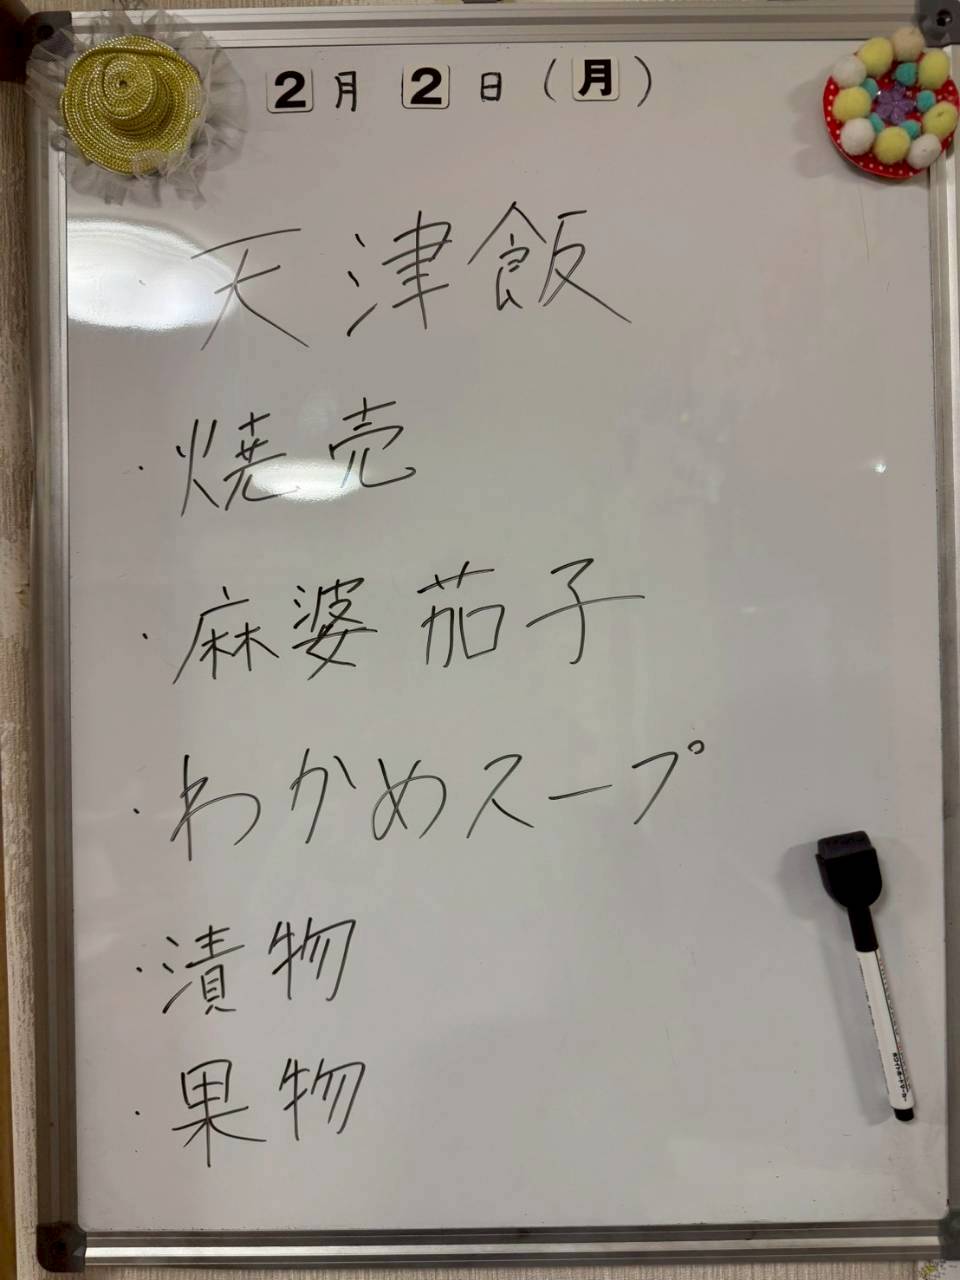 2月2日(月)
天津飯
・焼売
・麻婆茄子
・わかめスープ
・漬物
・果物